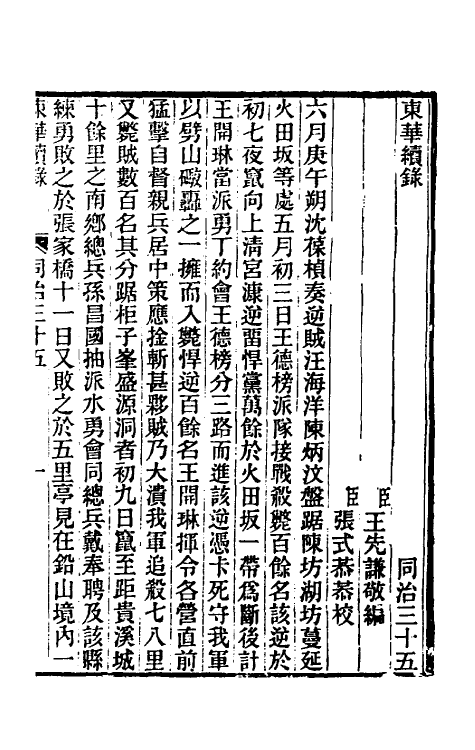 東華續錄
同治三十五
臣王先謙敬編
臣張式恭恭校
六月庚午朔沈葆楨奏逆賊汪海洋陳炳汶盤踞陳坊湖坊蔓延
火田坂等處五月初三日王德榜派隊接戰殺斃百餘名該逆於
初七夜竄向上清宮漮逆畱悍黨萬餘於火田坂一帶爲斷後計
王開琳當派勇丁約會王德榜分三路而進該逆憑卡死守我軍
以劈山礮轟之一擁而入斃悍逆百餘名王開琳揮令各營直前
猛擊自督親兵居中策應捦斬甚夥賊乃大潰我軍追殺七八里
又斃賊數百名其分踞柜子峯盛源洞者初九日竄至距貴溪城
十餘里之南鄉總兵孫昌國抽派水勇會同總兵戴奉聘及該縣
練勇敗之於張家橋十一日又敗之於五里亭見在鉛山境內一
東華續錄
同治三十五
一